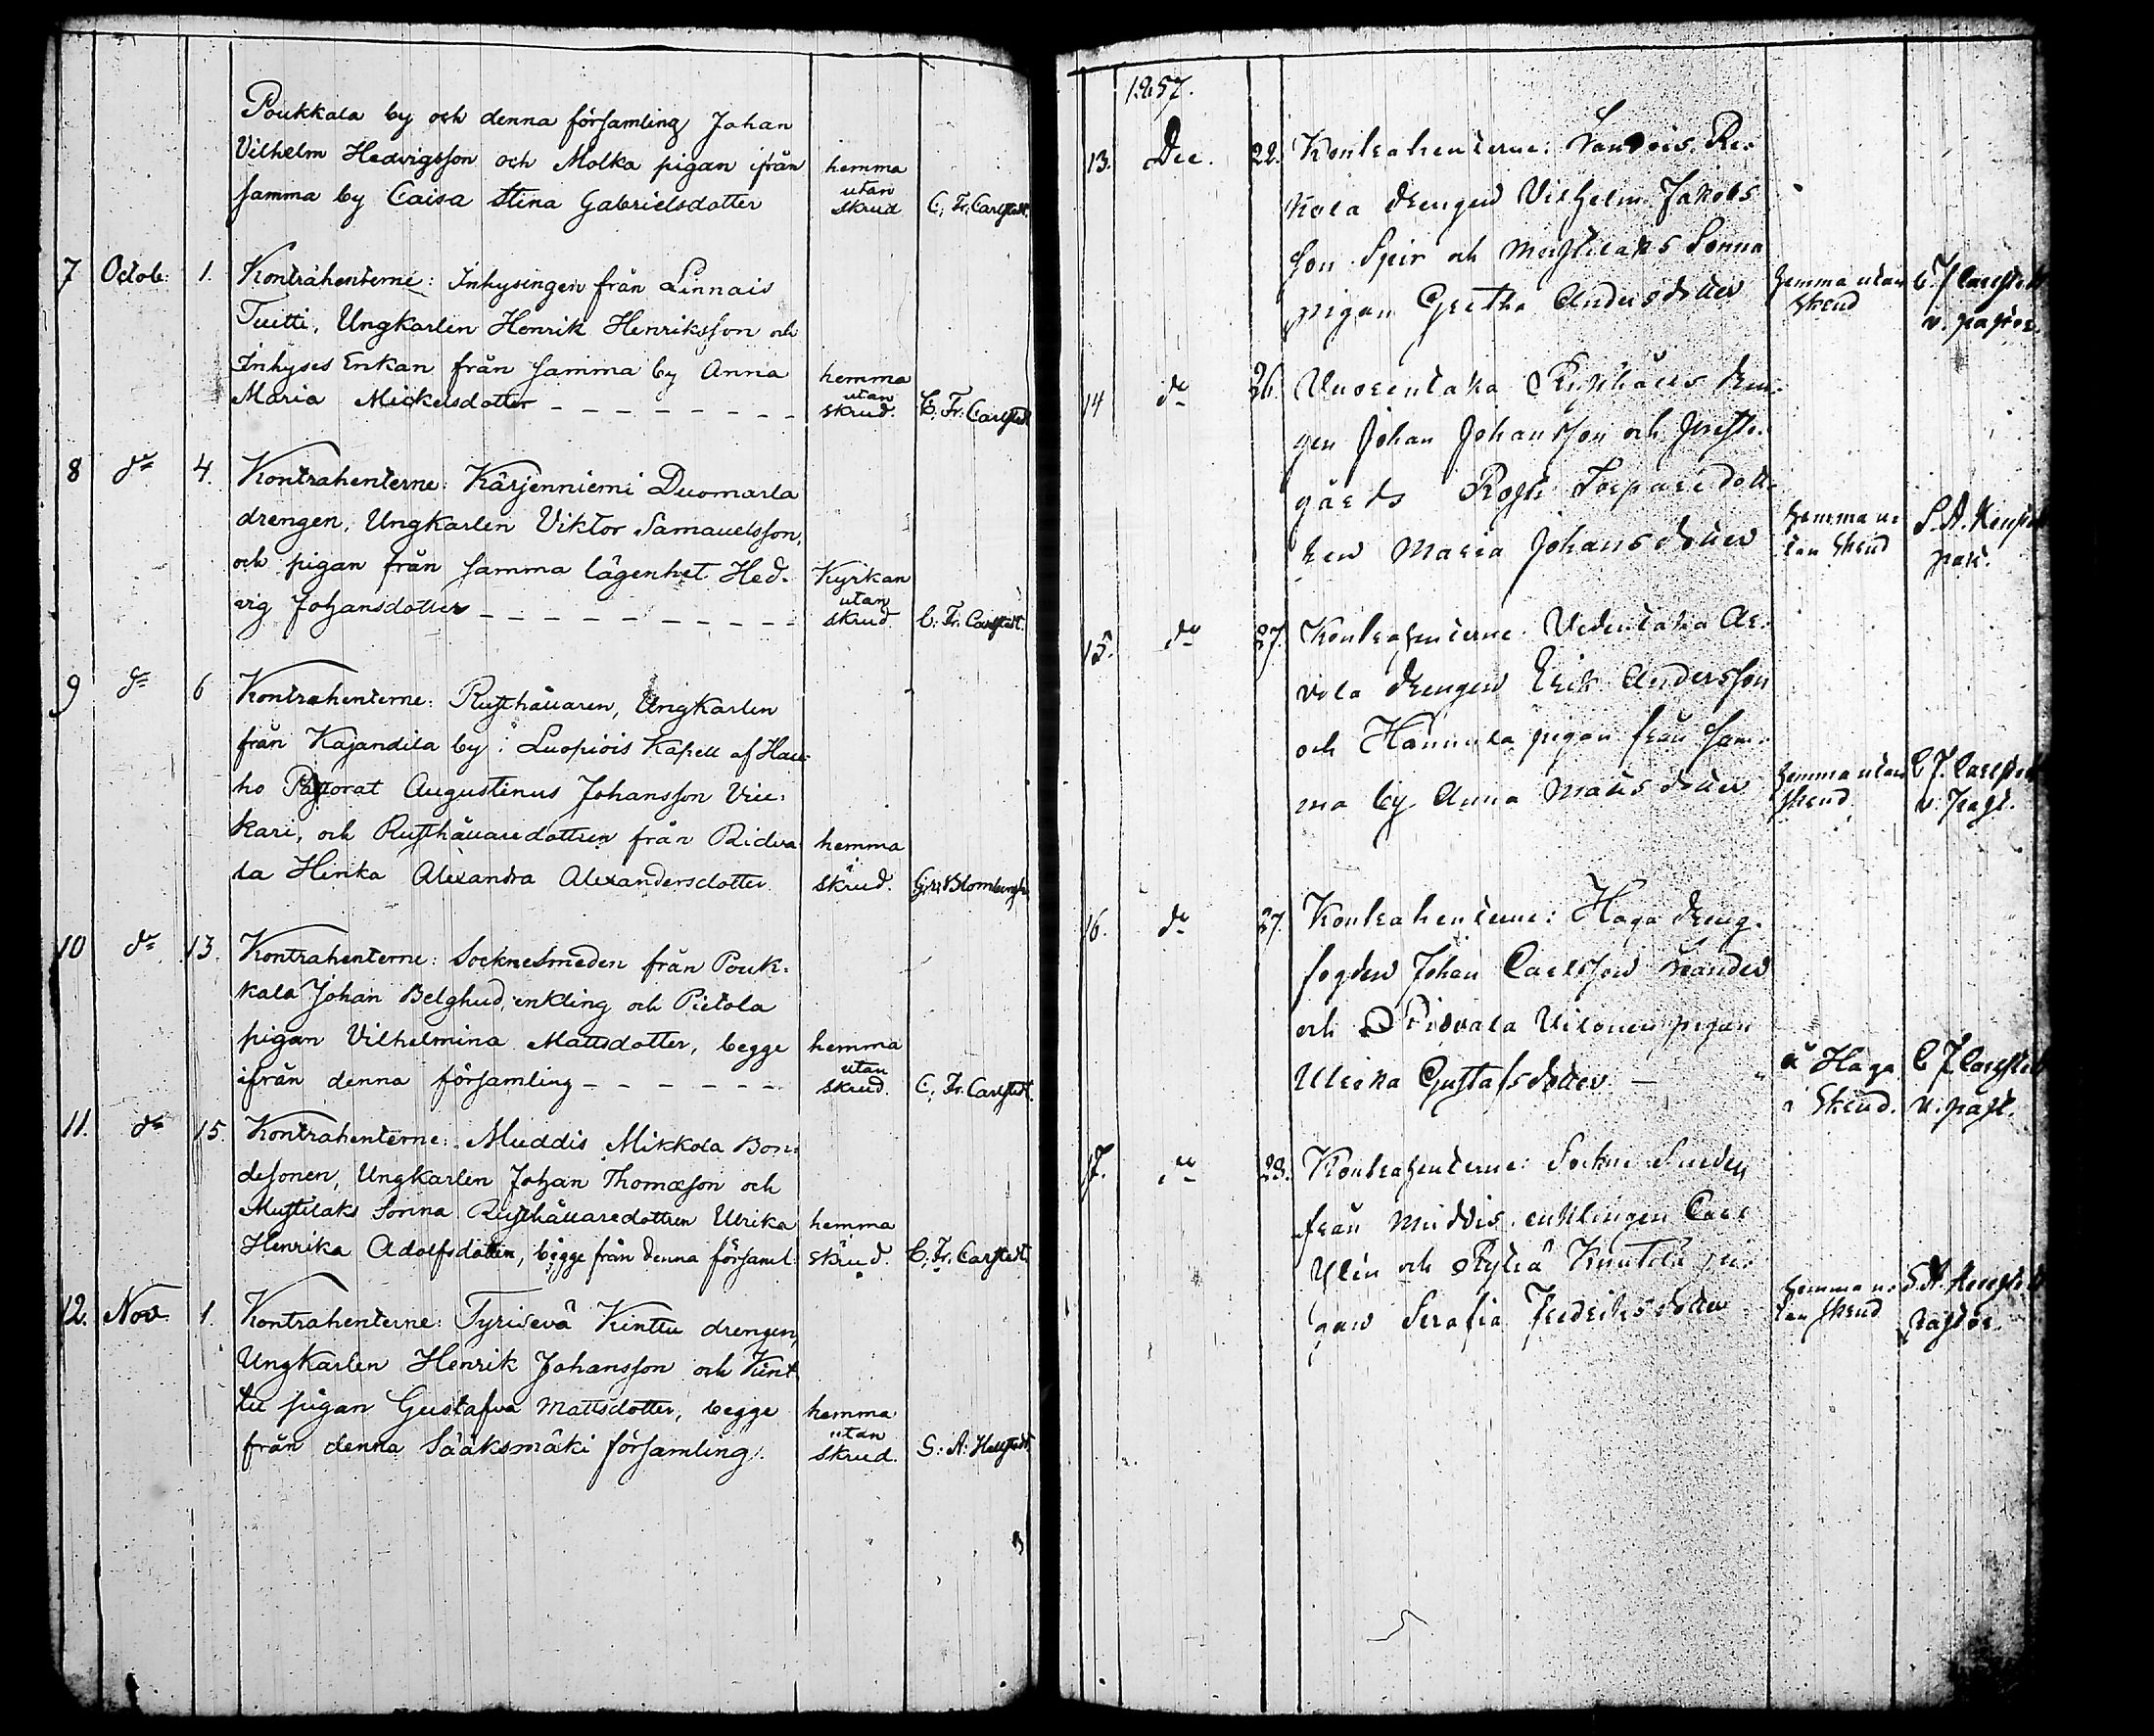 Poukkala by och denna församling Johan
Vilhelm Hedvigsson och Molka pigan ifrån hemma
utan
samma by Caisa Stina Gabrielsdotter skrud C. Fr. Carlstedt.
7 Octob: 1. Kontrahenterne: Inhysingen från Linnais
Tuitti, Ungkarlen Henrik Henriksson och
Inhyses Enkan från samma by Anna hemma
utan
Maria Mickelsdotter skrud. C. Fr. Carlstedt
8 do 4. Kontrahenterne: Kärjenniemi Duomarla
drengen, Ungkarlen Viktor Samauelsson,
och pigan från samma lägenhet Hed- Kyrkan
utan
vig Johansdotter skrud C. Fr. Carlstedt.
9 do 6 Kontrahenterne: Rusthållaren, Ungkarlen
från Kajandila by i Luopiois Kapell af Hau-
ho Pastorat Augustinus Johansson Vii-
kari, och Rusthållaredottren från Ridva- hemma
i
la Hinka Alexandra Alexandersdotter. skrud. Blombergh
10 do 13. Kontrahenterne: Socknesmeden från Pouk-
kala Johan Belghud, enkling och Pietola
pigan Vilhelmina Mattsdotter, begge hemma
utan
ifrån denna församling skrud. C. Fr. Carlstedt.
11. do 15. Kontrahenterne: Muddis Mikkola Bon-
desonen, Ungkarlen Johan Thomasson och
Mustilaks Sonna Rusthållaredottren Ulrika hemma
i
Henrika Adolfsdotter, begge från denna församl. skrud. C. Fr. Carlstedt.
12. Nov. 1. Kontrahenterne: Tyrisevä Kinttu drengen,
Ungkarlen Henrik Johansson och Kint-
tu pigan Gustafva Mattsdotter, begge hemma
utan
från denna Sääksmäki församling. skrud. S. A. Hellstedt
1857.
13. Dec. 22. Kontrahenterne: Re-
kola drengen Vilhelm Jakobs
son Speir och Mustilaks Sonna
pigan Gretha Andersdotter hemma utan skrud C. F. Carlstedt v. pastor.
14 do 26. Vuorentaka Rusthålls dren-
gen Johan Johansson och Prest-
gårds Rosti Torparedott-
ren Maria Johansdotter hemma u-
tan skrud S. A.
past.
15. do 27. Kontrahenterne: Uedentaka Ar-
vola drengen Erik Andersson
och Hannula pigan från sam-
ma by Anna Matsdotter hemma utan
skrud C. F. Carlstedt
v. past.
16. do 27. Kontrahenterne: Haga dreng-
fogden Johan Carlsson
och Ridvala Uilonen pigan
Ulrika Gustafsdotter å Haga
i skrud. C F Carlstedt
v. past.
17. do 29. Kontrahenterne: Sockne Smeden
från Muddis, enklingen Carl
Ylén och Kyliä Knuutila pi-
gan Serafia Fredriksdotter hemma u-
tan skrud S. A.
Pastor.